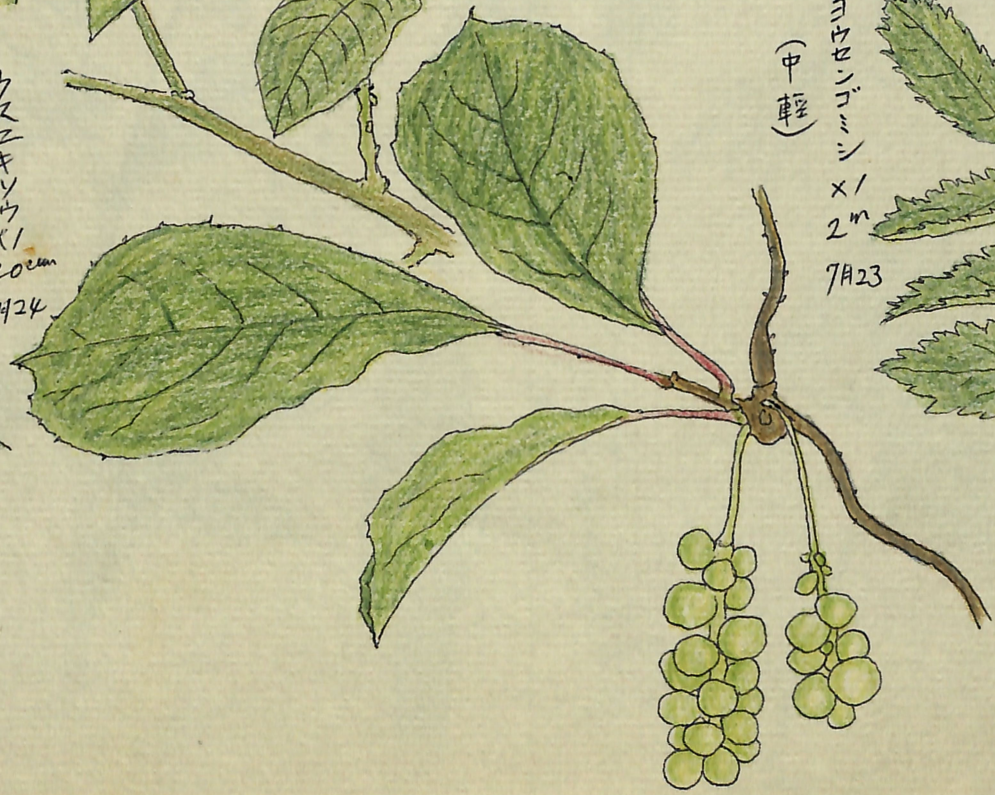 ヨウセンゴミシ
(中軽)
×1
2m
7月23
ウスユキソウ
×1
20cm
月24